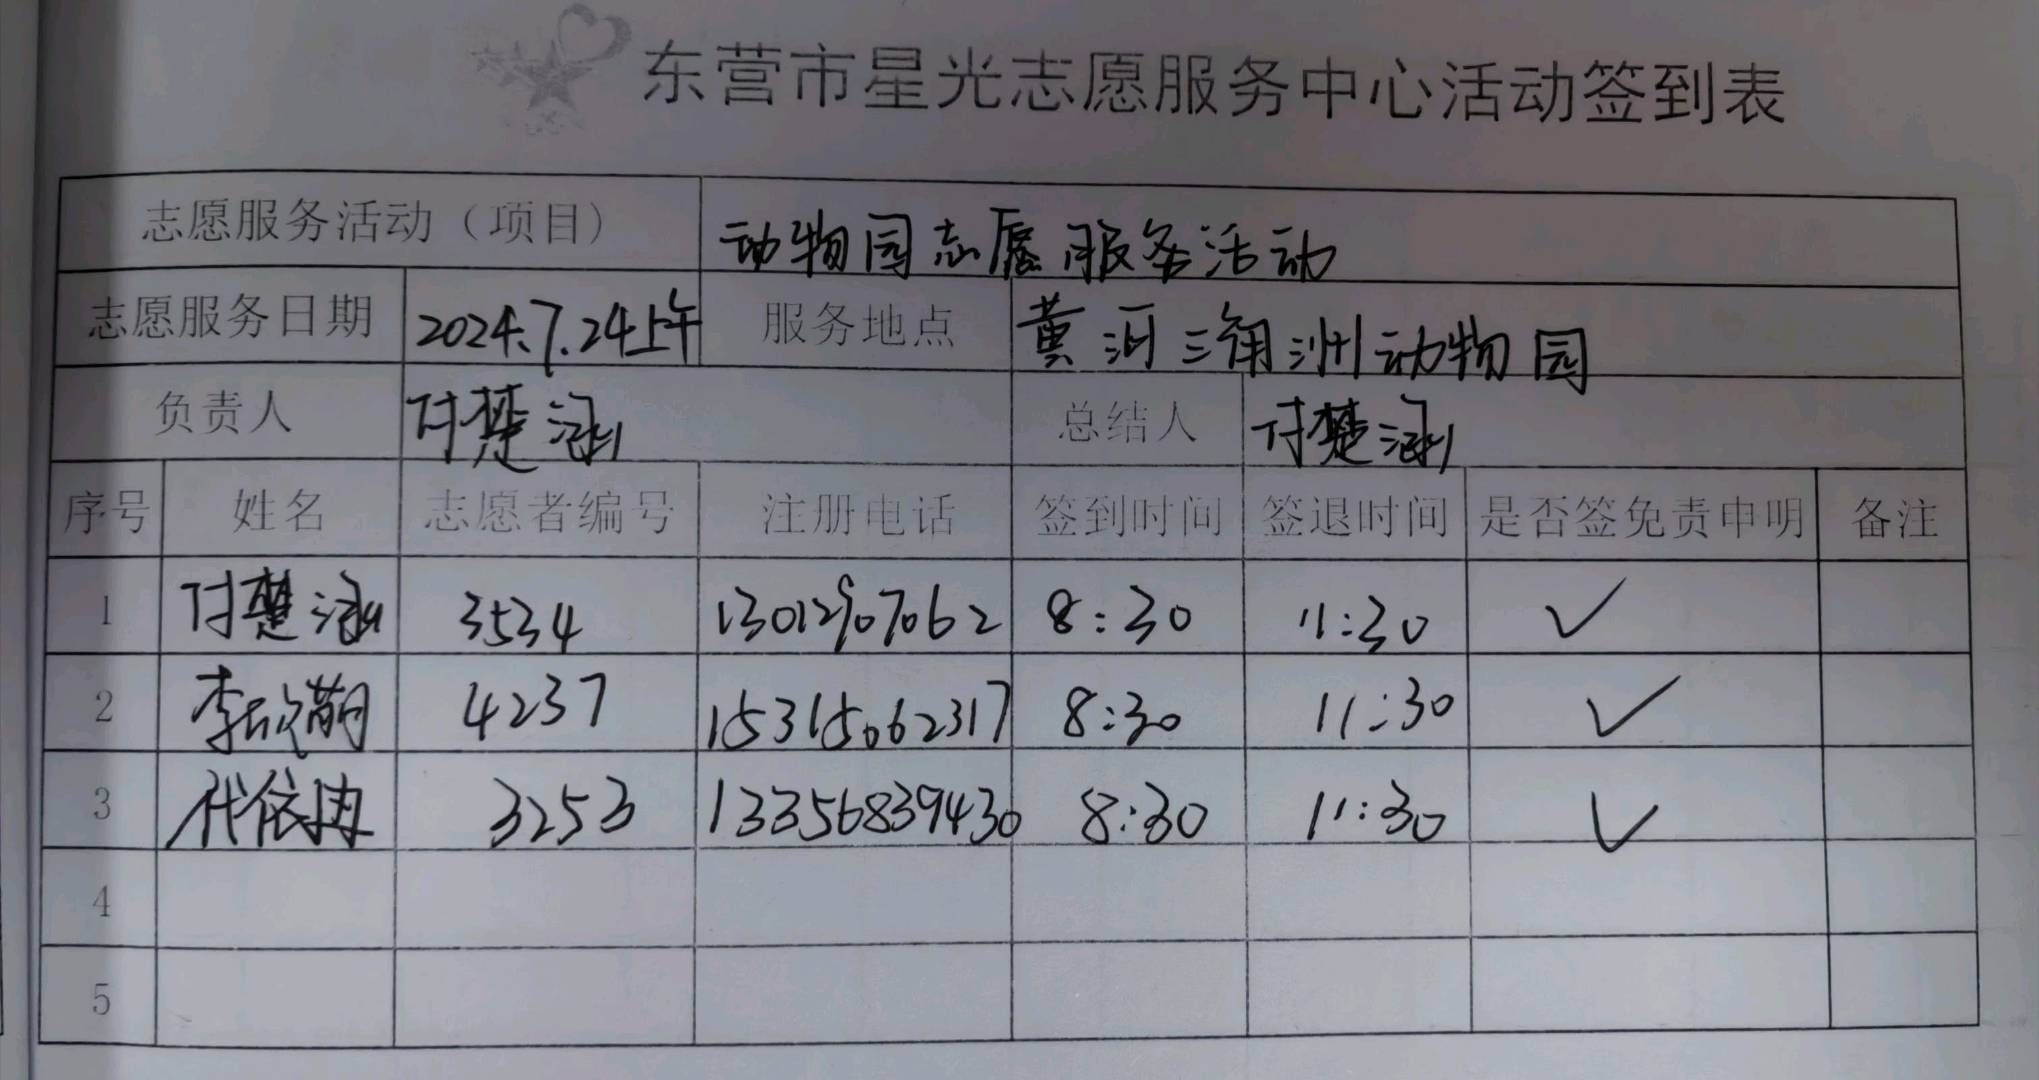 东营市星光志愿服务中心活动签到表
志愿服务活动（项目） 动物园志愿服务活动
志愿服务日期 2024.7.24上午 服务地点 黄河三角洲动物园
负责人 付楚涵 总结人 付楚涵
序号 姓名 志愿者编号 注册电话 签到时间 签退时间 是否签免责申明 备注
1 付楚涵 3534 13012907062 8:30 11:30 ✓
2 李欣萌 4237 15315062317 8:30 11:30 ✓
3 代依冉 3253 13356839430 8:30 11:30 ✓
4
5